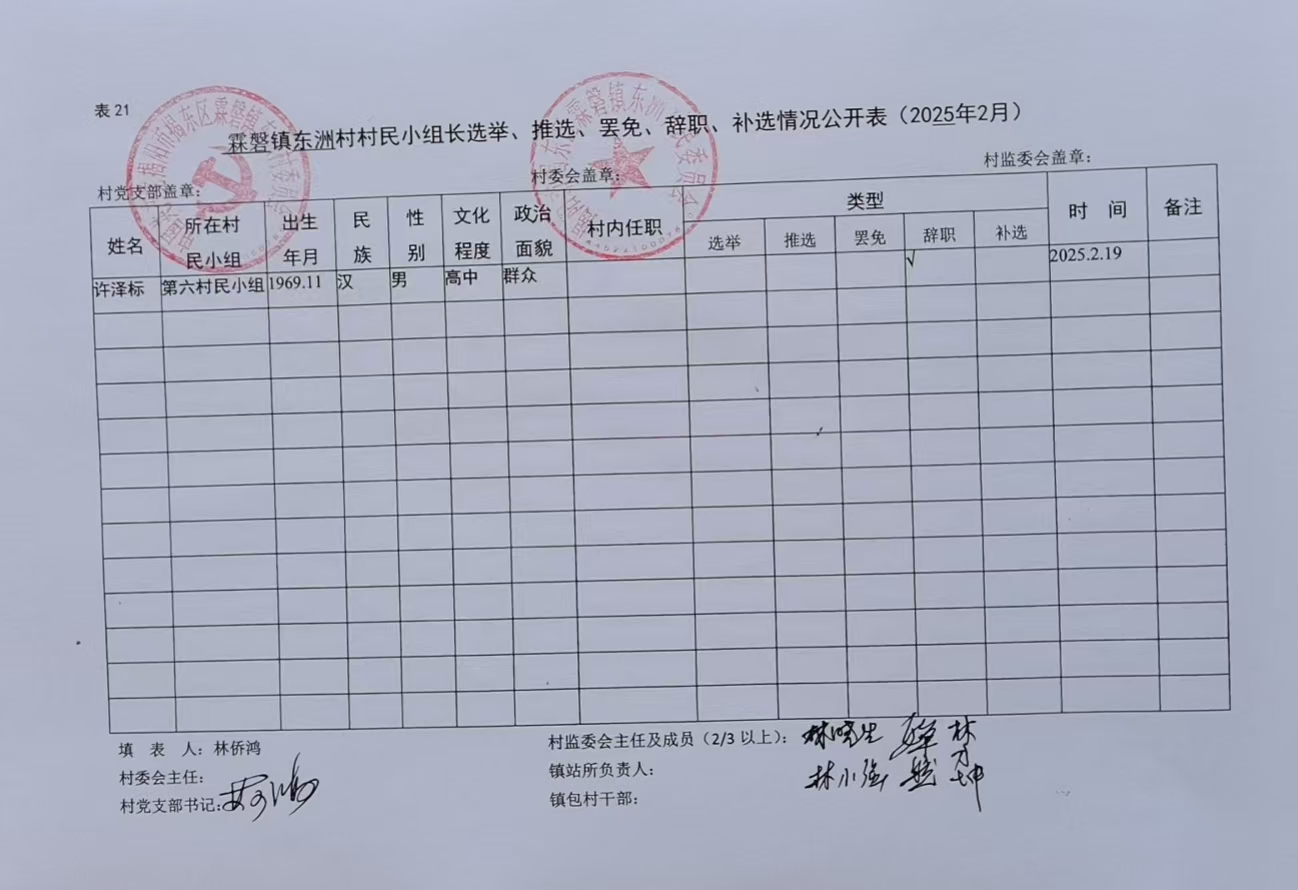 表 21
霖磐镇东洲村村民小组长选举、推选、罢免、辞职、补选情况公开表（2025年2月）
村党支部盖章： 村委会盖章： 村监委会盖章：
姓名 所在村民小组 出生年月 民族 性别 文化程度 政治面貌 村内任职 类型 时 间 备注
选举 推选 罢免 辞职 补选
许泽标 第六村民小组 1969.11 汉 男 高中 群众 √ 2025.2.19
填 表 人：林侨鸿
村委会主任：
村党支部书记：
村监委会主任及成员（2/3 以上）： 林晓生
镇站所负责人： 林小强
镇包村干部：